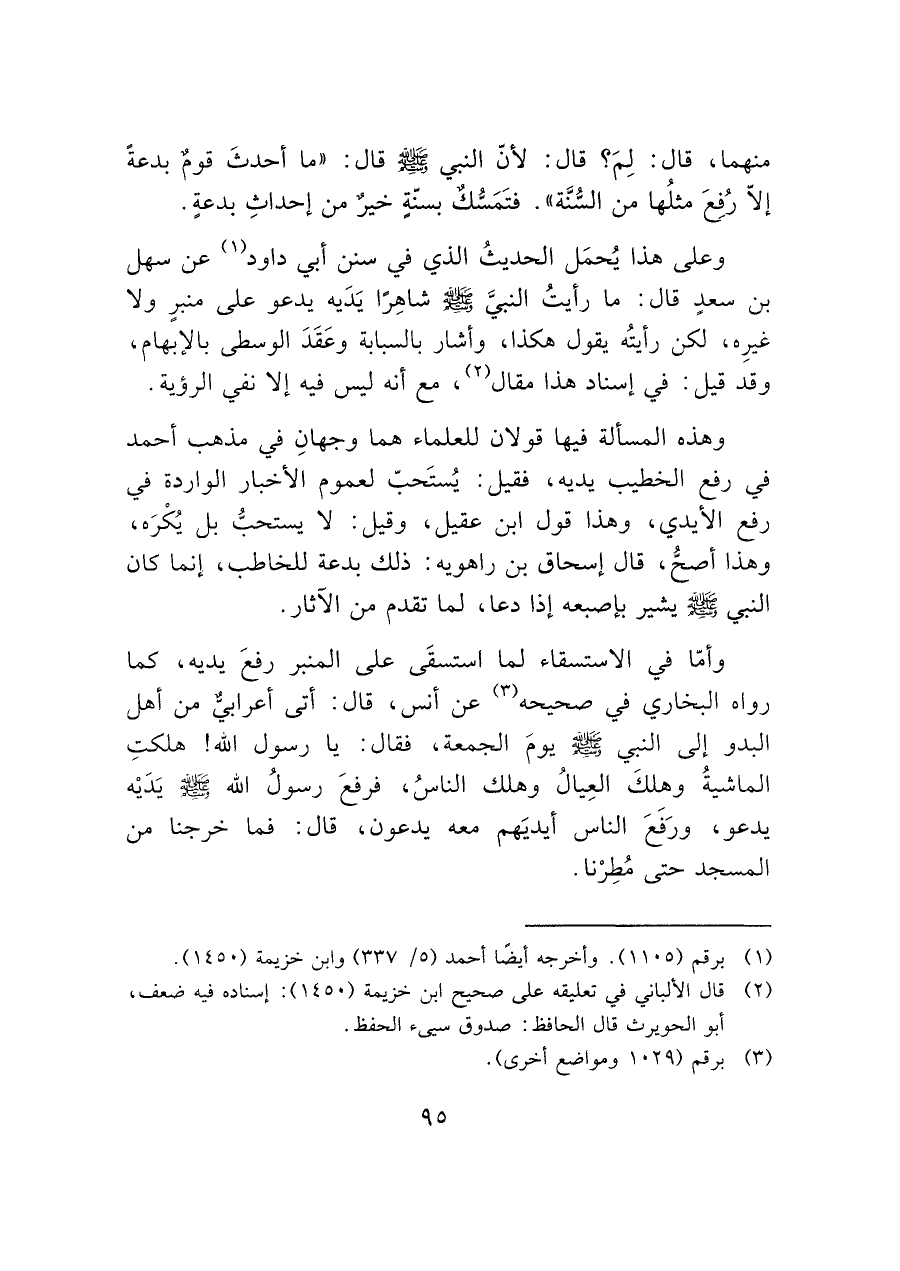 منهما، قال: لِمَ؟ قال: لأنّ النبي ﷺ قال: «ما أحدثَ قومٌ بدعةً
إلاّ رُفِعَ مثلُها من السُّنَّة». فتَمَسُّكٌ بسنّةٍ خيرٌ من إحداثِ بدعةٍ.
وعلى هذا يُحمَل الحديثُ الذي في سنن أبي داود(١) عن سهل
بن سعدٍ قال: ما رأيتُ النبيَّ ﷺ شاهِرًا يَدَيه يدعو على منبرٍ ولا
غيرِه، لكن رأيتُه يقول هكذا، وأشار بالسبابة وعَقَدَ الوسطى بالإبهام،
وقد قيل: في إسناد هذا مقال(٢)، مع أنه ليس فيه إلا نفي الرؤية.
وهذه المسألة فيها قولان للعلماء هما وجهانِ في مذهب أحمد
في رفع الخطيب يديه، فقيل: يُستَحبّ لعموم الأخبار الواردة في
رفع الأيدي، وهذا قول ابن عقيل، وقيل: لا يستحبُّ بل يُكْرَه،
وهذا أصحُّ، قال إسحاق بن راهويه: ذلك بدعة للخاطب، إنما كان
النبي ﷺ يشير بإصبعه إذا دعا، لما تقدم من الآثار.
وأمّا في الاستسقاء لما استسقَى على المنبر رفعَ يديه، كما
رواه البخاري في صحيحه(٣) عن أنس، قال: أتى أعرابيٌّ من أهل
البدو إلى النبي ﷺ يومَ الجمعة، فقال: يا رسول الله! هلكتِ
الماشيةُ وهلكَ العِيالُ وهلك الناسُ، فرفعَ رسولُ الله ﷺ يَدَيْه
يدعو، ورَفَعَ الناس أيديَهم معه يدعون، قال: فما خرجنا من
المسجد حتى مُطِرْنا.
(١) برقم (١١٠٥). وأخرجه أيضًا أحمد (٥/ ٣٣٧) وابن خزيمة (١٤٥٠).
(٢) قال الألباني في تعليقه على صحيح ابن خزيمة (١٤٥٠): إسناده فيه ضعف،
أبو الحويرث قال الحافظ: صدوق سيىء الحفظ.
(٣) برقم (١٠٢٩ ومواضع أخرى).
٩٥